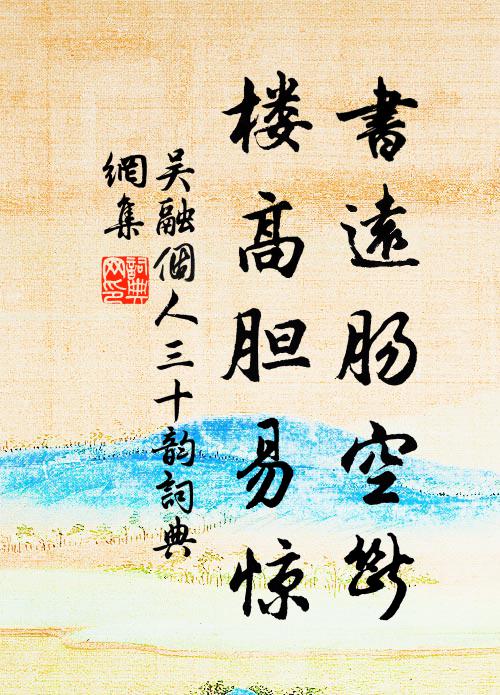 書遠肠空斷
楼高胆易惊
吴融個人三十韵詞典
網集
詞典网印